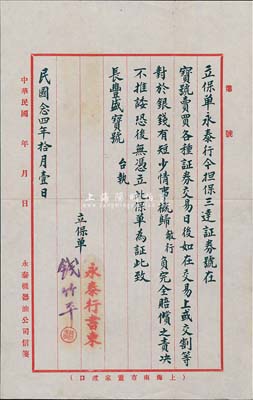 電號
立保單永泰行今担保三達証券號在
寳號賣買各種証券交易日後如在交易上或交割等
對於銀錢有短少情事概歸敝行負完全賠償之責決
不推諉恐後無憑立此保單為証此致
長豐盛寳號 台執
立保單 永泰行書柬
錢竹平
民國念四年拾月壹日
中華民國 年 月 日
永泰機器油公司信箋
(上海南市董家渡口)